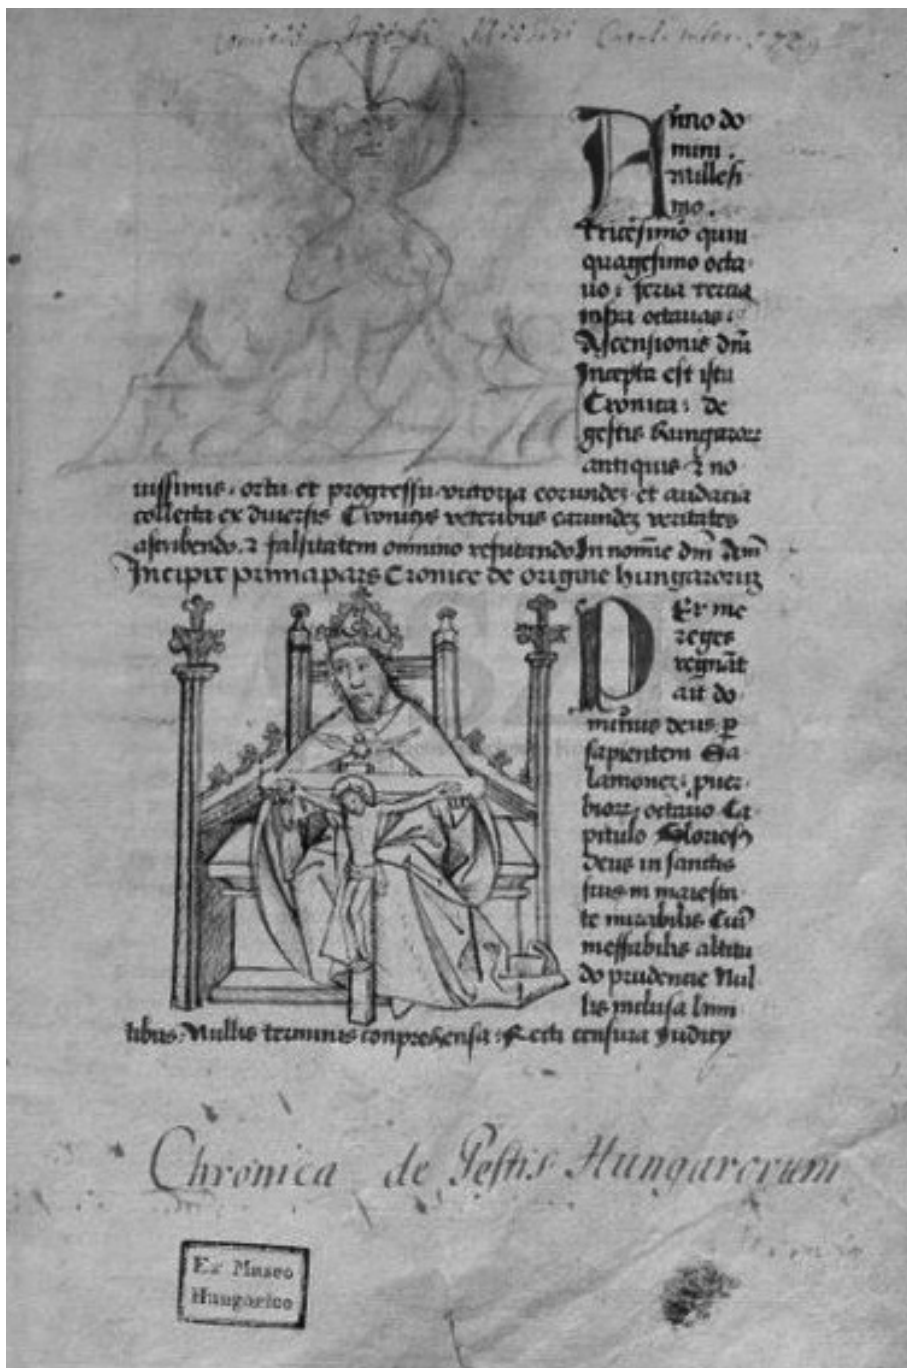 Anno do
mini.
Millesi
mo.
Tricesimo quin
quagesimo octa
uo: feria tercia
infra octauas:
Ascensionis dni
Incepta est ista
Cronica: de
gestis hungaror
antiquis et no
uissimis. ortu et progressu. victoria eorundez et audacia
collecta ex diuersis Cronicis veteribus earundez veritates
ascribendo. et falsitatem omnino refutando In nomine dni
Incipit prima pars Cronice de origine hungaroruz
Per me
reges
regnāt
ait do
minus deus p
sapientem Sa
lamonez. puer
bior. octauo Ca
pitulo Glorios
deus in sanctis
suis in maiesta
te mirabilis Cui
ineffabilis altitu
do prudencie Nul
lis inclusa limi
tibus. Nullis terminis conprehensa. Recti censura Iudicij
Chronica de Gestis Hungarorum
Ex Museo
Hungarico